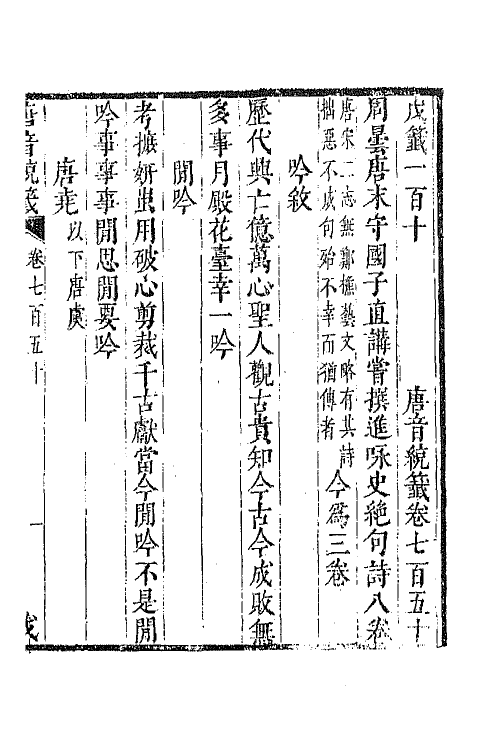 戊籤一百十　　唐音統籤卷七百五十
周曇唐末守國子直講嘗撰進咏史絶句詩八卷
唐宋二志無鄭樵藝文略有其詩
拙惡不成句殆不幸而猶傳者
今爲三卷
吟敘
歷代興亡億萬心聖人觀古貴知今古今成敗無
多事月殿花臺幸一吟
閒吟
考摭妍蚩用破心剪裁千古獻當今閒吟不是閒
吟事事事閒思閒要吟
唐堯以下唐虞
唐音統籤　卷七百五十　一　戊